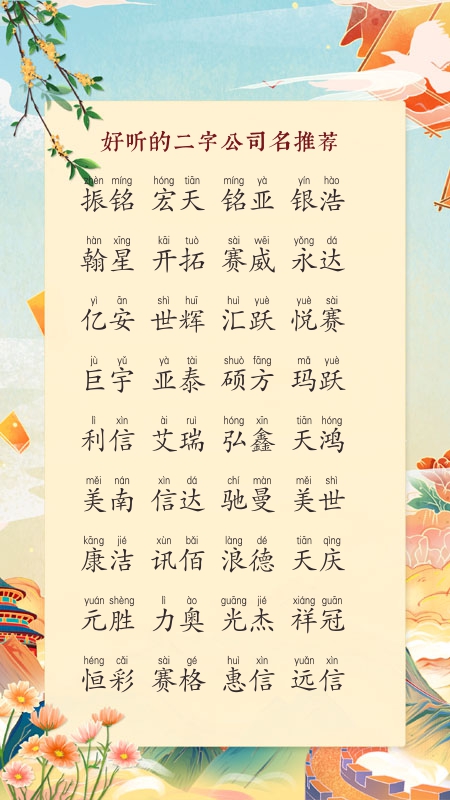 好听的二字公司名推荐
zhèn míng hóng tiān míng yà yín hào
振铭 宏天 铭亚 银浩
hàn xīng kāi tuò sài wēi yǒng dá
翰星 开拓 赛威 永达
yì ān shì huī huì yuè yuè sài
亿安 世辉 汇跃 悦赛
jù yǔ yà tài shuò fāng mǎ yuè
巨宇 亚泰 硕方 玛跃
lì xìn ài ruì hóng xīn tiān hóng
利信 艾瑞 弘鑫 天鸿
měi nán xìn dá chí màn měi shì
美南 信达 驰曼 美世
kāng jié xùn bǎi làng dé tiān qìng
康洁 讯佰 浪德 天庆
yuán shèng lì ào guāng jié xiáng guān
元胜 力奥 光杰 祥冠
héng cǎi sài gé huì xìn yuǎn xìn
恒彩 赛格 惠信 远信